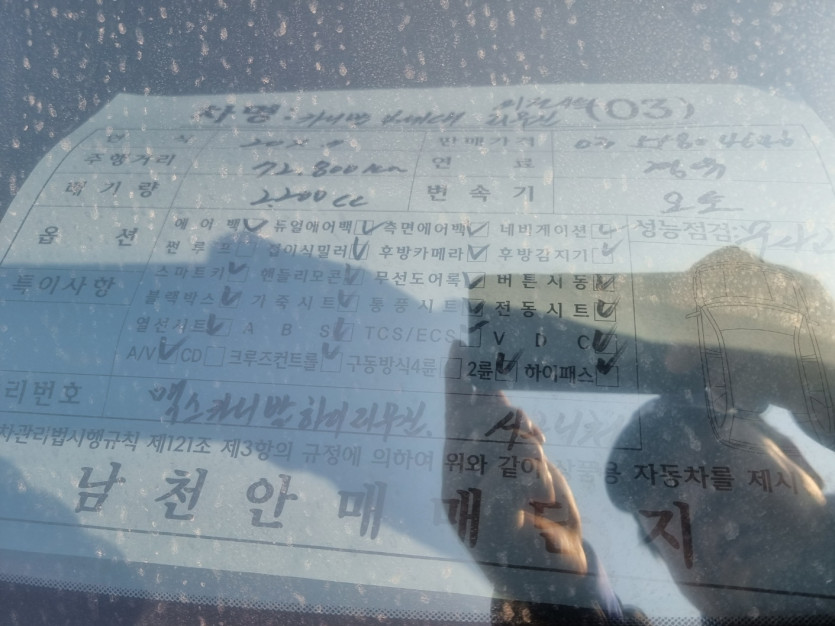 차 명: 카니발 (03)
연 식 판매가격
주행거리 72.800km 연 료 경유
배기량 2.200cc 변 속 기 오토
옵 션 에 어 백 듀얼에어백 측면에어백 네비게이션 성능점검: 무사고
썬 루 프 접이식밀러 후방카메라 후방감지기
특이사항 스마트키 핸들리모콘 무선도어록 버튼시동
블랙박스 가죽시트 통풍시트 전동시트
열선시트 A B S TCS/ECS V D C
A/V CD 크루즈컨트롤 구동방식4륜 2륜 하이패스
리번호 맥스카니발하이리무진.
차관리법시행규칙 제121조 제3항의 규정에 의하여 위와 같이 상품용 자동차를 제시
남천안매매단지